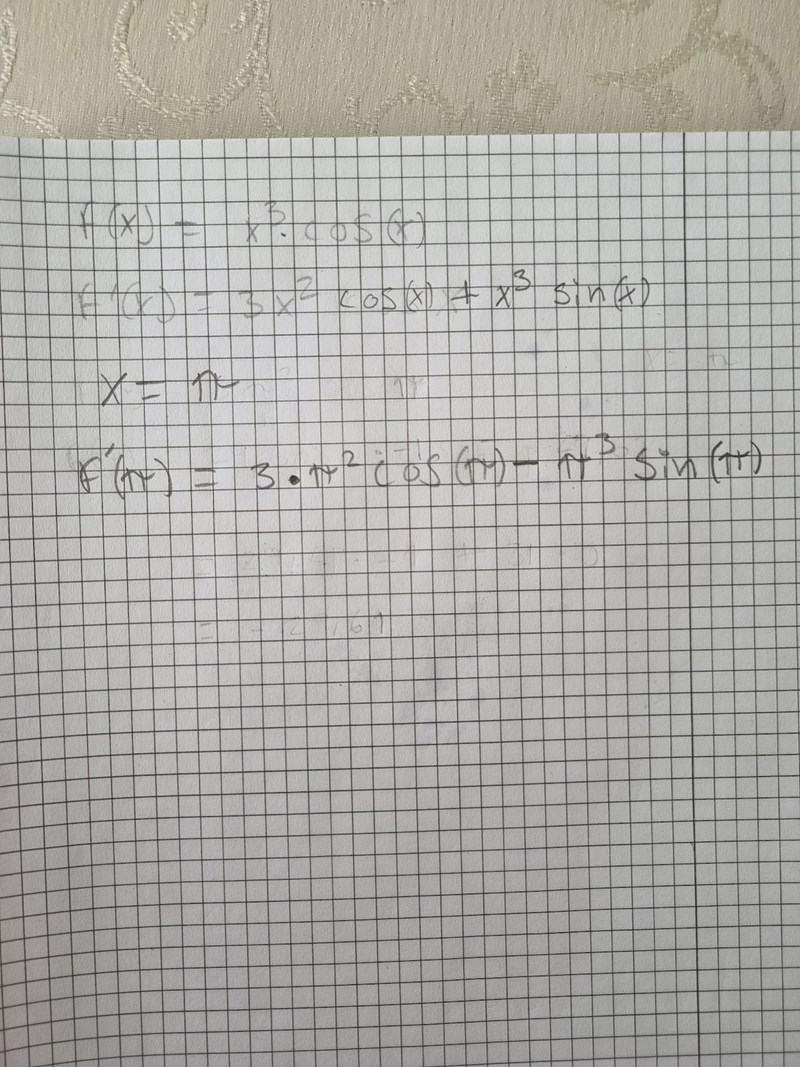 f(x) = x³·cos(x)
f'(x) = 3x² cos(x) + x³ sin(x)
x = π
f'(π) = 3·π² cos(π) − π³ sin(π)